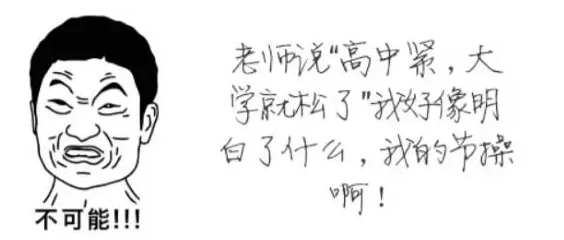 老师说“高中紧，大
学就松了”我好像明
白了什么，我的节操
啊！
不可能!!!